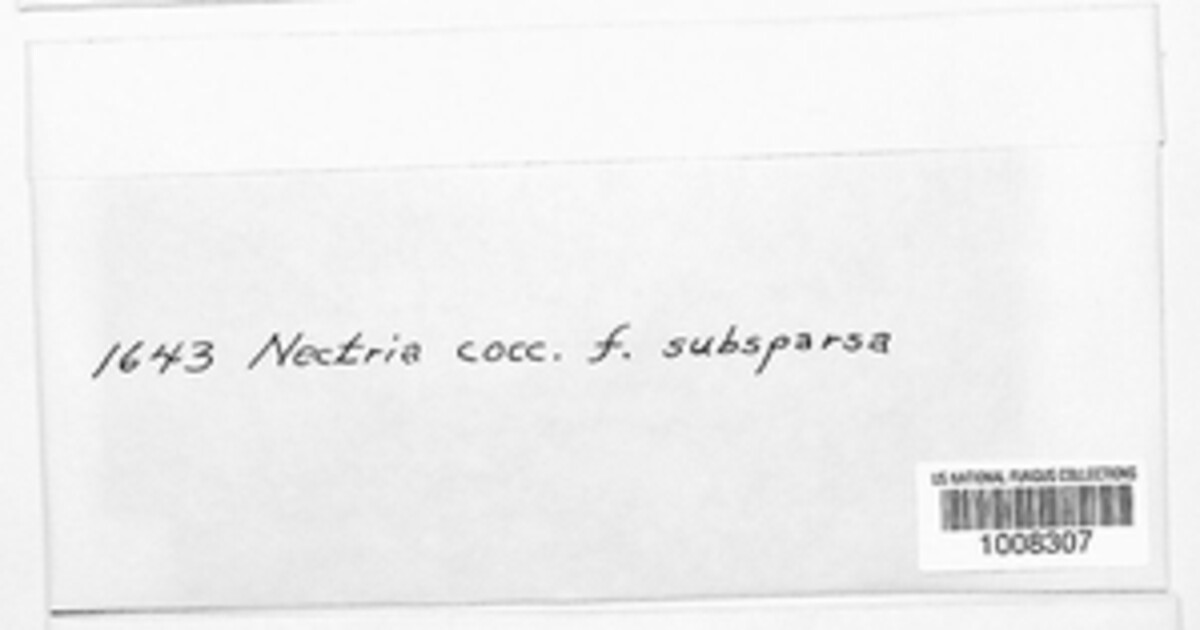 1643 Nectria cocc. f. subsparsa
US NATIONAL FUNGUS COLLECTIONS
1008307